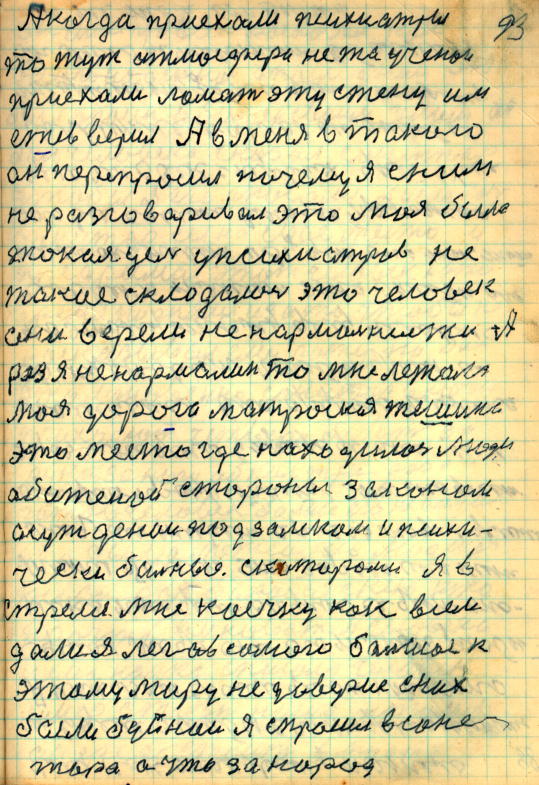 А когда приехали психиатры 93
то туж атмосфера не та ученои
приехали ломат эту стену им
стев верил А в меня в такого
он перепросил почему я сним
не разговаривал это моя была
такая цел упсихиатров не
такие склодалос это человек
они верели ненармалностки А
раз я ненармалин то мне лежала
моя дорога матроская тишина
это место где находилос люди
абиженой стороны законом
асужденои под замком и психи-
чески балные. скоторами Я в
стрелс мне коечку как всем
дали я лег ав самого балшое к
этому миру не доверие сних
были буйнои я спросил всане-
тора а что за народ